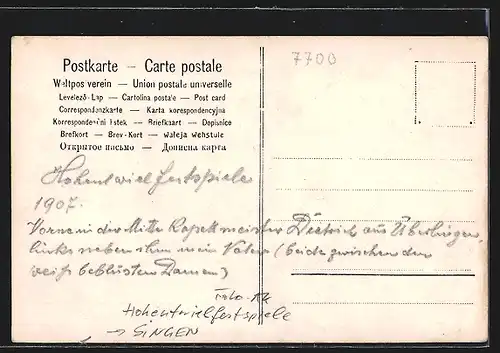 Postkarte — Carte postale
Weltpostverein — Union postale universelle
Levelező-Lap — Cartolina postale — Post card
Correspondenzkarte — Karta korespondencyjna
Korrespondenční lístek — Briefkaart — Dopisnice
Brefkort — Brev-Kort — Waleja wehstule
Открытое письмо — Дописна карта
7700
Hohentwielfestspiele
1907.
Vorne in der Mitte Kapellmeister Dietrich aus Überlingen,
links neben ihm mein Vater (beide zwischen den
weiß beblusten Damen)
Foto-AK
Hohentwielfestspiele
→ SINGEN